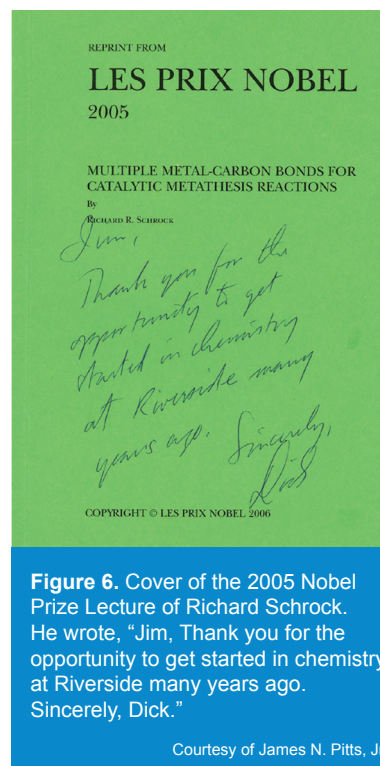 REPRINT FROM
LES PRIX NOBEL
2005
MULTIPLE METAL-CARBON BONDS FOR
CATALYTIC METATHESIS REACTIONS
By
RICHARD R. SCHROCK
Jim,
Thank you for the
opportunity to get
started in chemistry
at Riverside many
years ago. Sincerely,
Dick
COPYRIGHT © LES PRIX NOBEL 2006
Figure 6. Cover of the 2005 Nobel
Prize Lecture of Richard Schrock.
He wrote, “Jim, Thank you for the
opportunity to get started in chemistry
at Riverside many years ago.
Sincerely, Dick.”
Courtesy of James N. Pitts, J